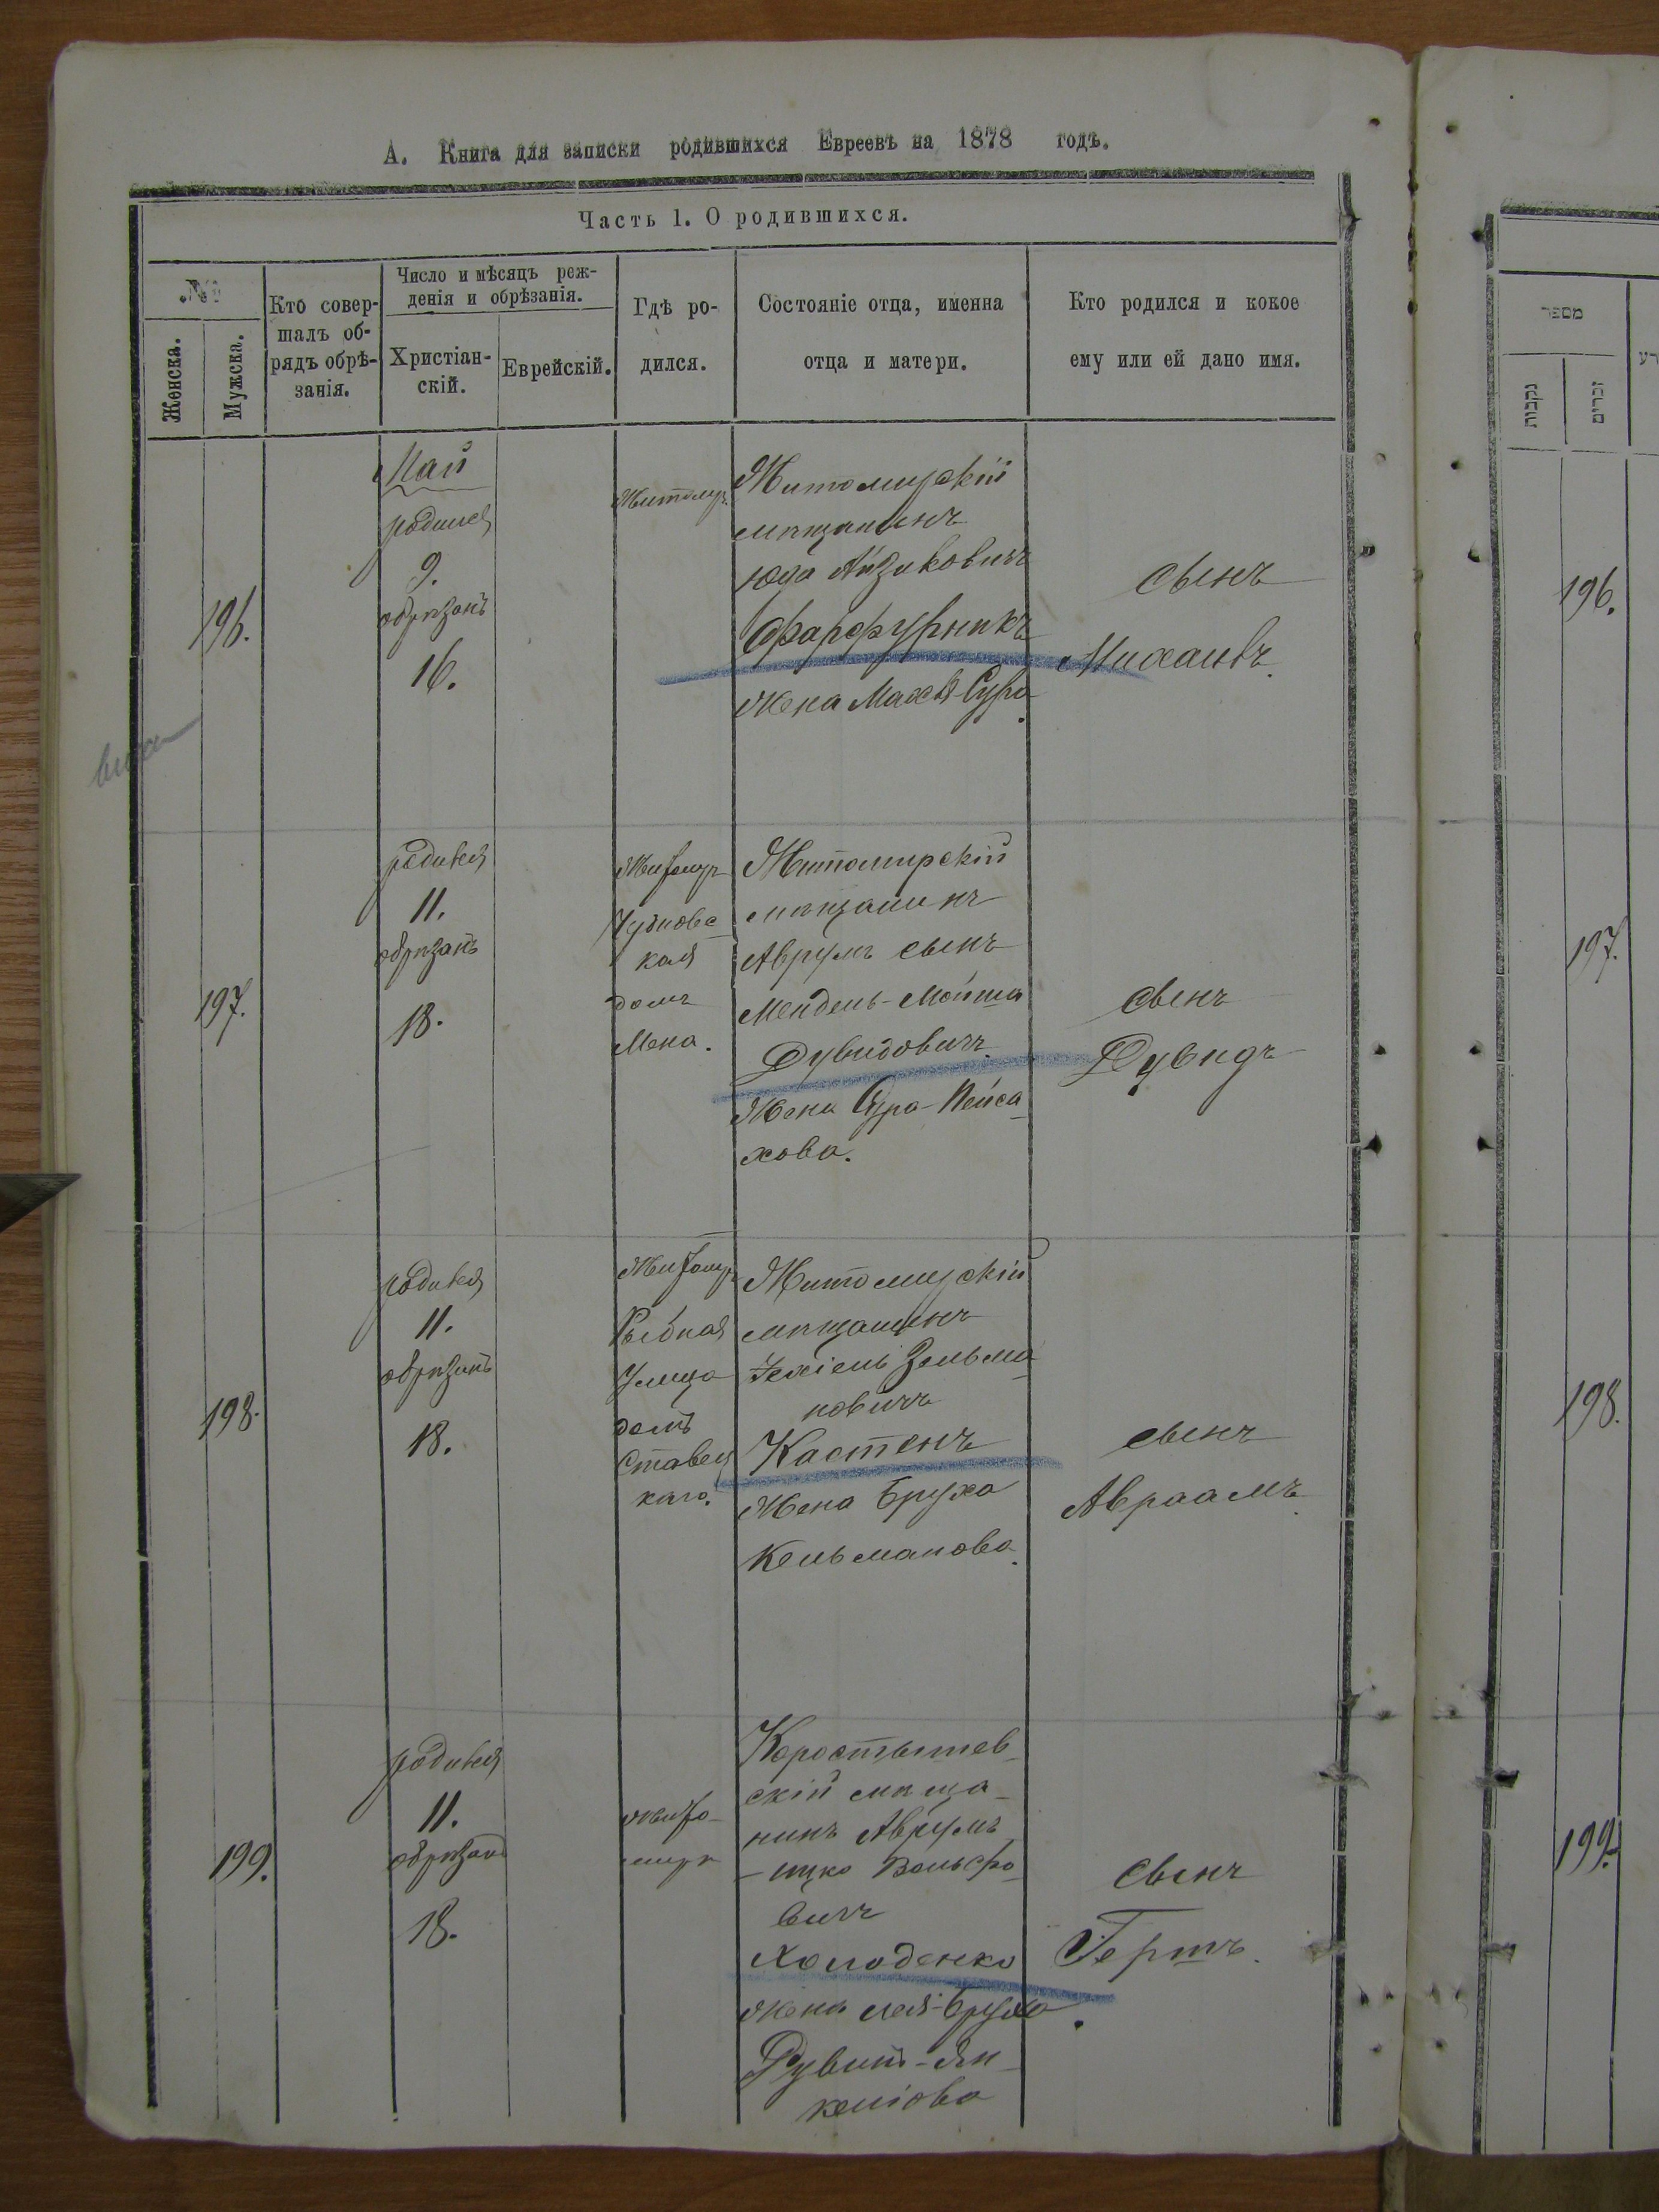 А. Книга для записки родившихся Евреевъ на 1878 годъ.
Часть 1. О родившихся.
№
Женска.
Мужска.
Кто совер-
шалъ об-
рядъ обрѣ-
занія.
Число и мѣсяцъ реж-
денія и обрѣзанія.
Христіан-
скій.
Еврейскій.
Гдѣ ро-
дился.
Состояніе отца, именна
отца и матери.
Кто родился и кокое
ему или ей дано имя.
196.
Май
родился
9.
обрѣзанъ
16.
Житомиръ
Житомирскій
мѣщанинъ
Юда Айзиковичъ
Фарфурникъ
жена Сура
сынъ
197.
родился
11.
обрѣзанъ
18.
Житомиръ
Чудновс
кая
домъ
Мена.
Житомирскій
мѣщанинъ
Аврумъ сынъ
Мендель-Мойша
Дувидовичъ
жена Сура-Пейса
хова.
сынъ
Дувидъ
198.
родился
11.
обрѣзанъ
18.
Житомиръ
Рыбная
Улица
домъ
Ставец
каго.
Житомирскій
мѣщанинъ
Іехіель Зельма
новичъ
Кастенъ
жена Бруха
Кельманова.
сынъ
Авраамъ.
199.
родился
11.
обрѣзанъ
18.
Жито-
миръ
Коростышев-
скій мѣща-
нинъ Аврумъ
-ицко Вольфо
вичъ
Холоденко
жена Лея-Бруха.
кеміова
сынъ
Гершъ.
מספר
נקבות
זכרים
196.
197.
198.
199.